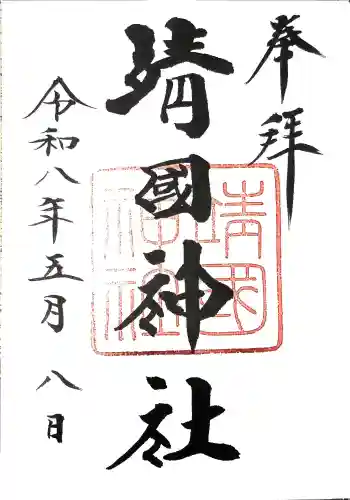 奉拝
靖國神社
靖國
神社
令和八年五月八日